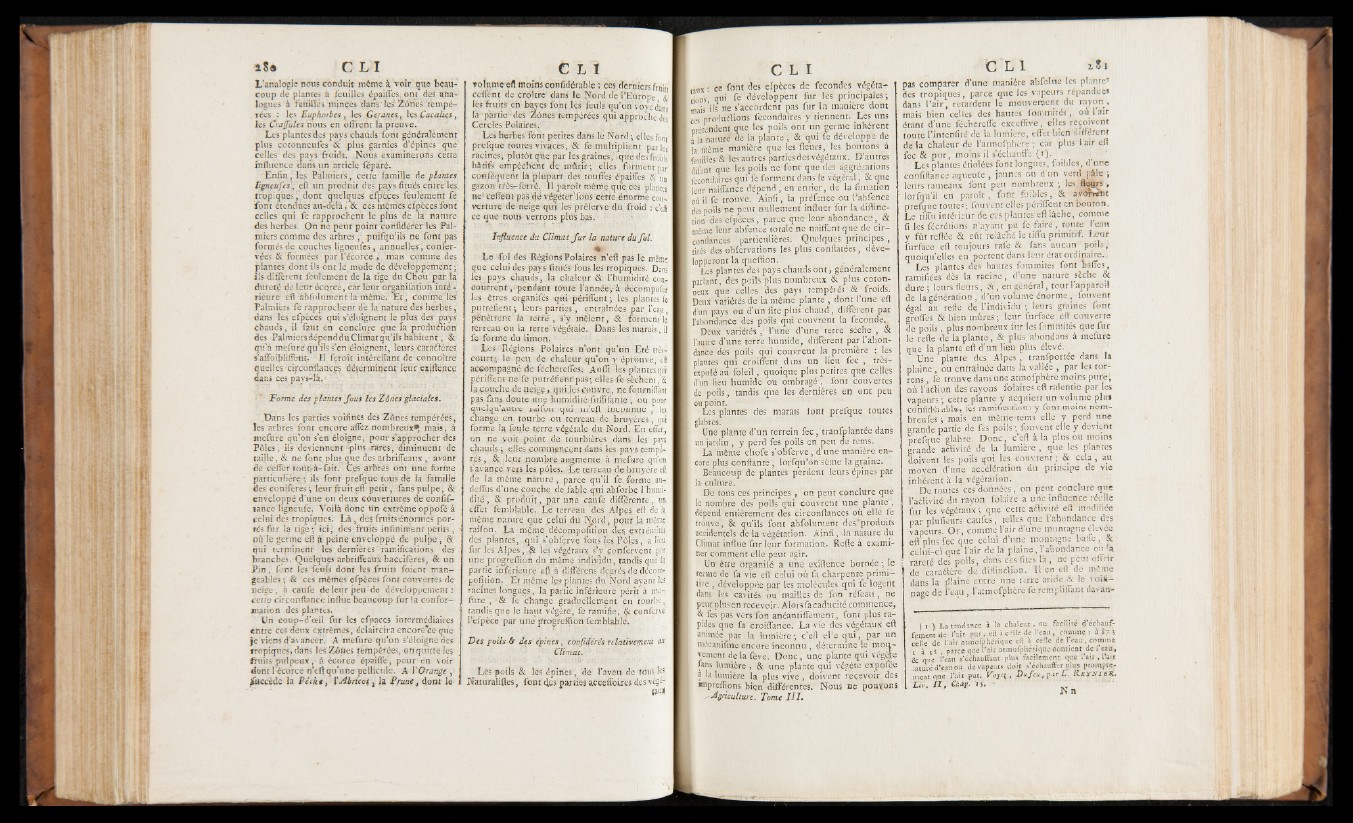 280 CLI
L'analogie nous conduit même à voir que beau-
coup de plantes à feuilles épaisses ont des ana-
logues à feuilles minces dans les Zônes tempé-
rées : les Euphorbes, les Geranes, les Cacalies,
les Crassules nous en offrent la preuve.
Les plantes des pays chauds sont généralement
plus cotonneuses & plus garnies d'épines que
celles des pays froids. Nous examinerons cette
influence dans un article séparé.
Enfin, les Palmiers, cette famille de plantes
ligneuses, est un produit des pays situés entre les
tropiques, dont quelques espèces seulement se
sont étendues au-delà, & ces mêmes espèces sont
celles qui se rapprochent le plus de la nature
des herbes. On ne peut point considérer les Pal-
miers comme des arbres, puisqu'ils ne sont pas
formés de couches ligneuses, annuelles, conser-
vées & formées par l'écorce, mais comme des
plantes dont ils ont le mode de développement;
ils diffèrent seulement de la tige du Chou par la
dureté de leur écorce, car leur organisation inté-
rieure est absolument la même. Et, comme les
Palmiers se rapprochent de la nature des herbes,
dans les espèces qui s'éloignent le plus des pays
chauds, il faut en conclure que la production
des Palmiers dépend du Climat qu'ils habitent, &
qu'à mesure qu'ils s'en éloignent, leurs caractères
s'affoiblissent. Il seroit intéressant de connoître
quelles circonstances déterminent leur existence
dans ces pays-là.
Forme des plantes sous les Zônes glaciales.
Dans les parties voisines des Zônes tempérées,
les arbres sont encore assez nombreux; mais, à
mesure qu'on s'en éloigne, pour s'approcher des
Pôles, ils deviennent plus rares, diminuent de
taille, & ne sont plus que des arbrisseaux, avant
de cesser tout-à-fait. Ces arbres ont une forme
particulière; ils sont presque tous de la famille
des conifères; leur fruit est petit, sans pulpe, &
enveloppé d'une ou deux couvertures de consis-
tance ligneuse. Voilà donc un extrême opposé à
celui des tropiques. Là, des fruits énormes por-
tés sur la tige; ici, des fruits infiniment petits,
où le germe est à peine enveloppé de pulpe, &
qui terminent les dernières ramifications des
branches. Quelques arbrisseaux baccifères, & un
Pin, sont les seuls dont les fruits soient man-
geables; & ces mêmes espèces sont couvertes de
neige, à cause de leur peu de développement :
cette circonstance influe beaucoup sur la confor-
mation des plantes.
Un coup-d'œil sur les espaces intermédiaires
entre ces deux extrêmes, éclaircira encore ce que
je viens d'avancer. A mesure qu'on s'éloigne des
tropiques, dans les Zônes tempérées, on quitte les
fruits pulpeux, à écorce épaisse, pour en voir
dont l'écorce n'est qu'une pellicule. A l'Orange,
succède la Pêche, l'Abricot, la Prune, dont le
CLI
volume est moins considérable; ces derniers fruits
cessent de croître dans le Nord de l'Europe, &
les fruits en bayes sont les seuls qu'on voye dans
la partie des Zônes tempérées qui approche des
Cercles Polaires.
Les herbes sont petites dans le Nord; elles sont
presque toutes vivaces, & se multiplient par les
racines, plutôt que par les graines, que des froids
hâtifs empêchent de mûrir; elles forment par
conséquent la plupart des touffes épaisses & un
gazon très-serré. Il paroît même que ces plantes
ne cessent pas de végéter sous cette énorme cou-
verture de neige qui les préserve du froid : c'est
ce que nous verrons plus bas.
Influence du Climat sur la nature du sol.
Le sol des Régions Polaires n'est pas le même
que celui des pays situés sous les tropiques. Dans
les pays chauds, la chaleur & l'humidité con-
courent, pendant toute l'année, à décomposer
les êtres organisés qui périssent; les plantes se
putréfient; leurs parties, entraînées par l'eau,
pénètrent la terre, s'y mêlent, & forment le
terreau ou la terre végétale. Dans les marais, il
se forme du limon.
Les Régions Polaires n'ont qu'un Eté très-
court; le peu de chaleur qu'on y éprouve, est
accompagné de sécheresses. Aussi les plantes qui
périssent ne se putréfient pas; elles se sèchent, &
la couche de neige, qui les couvre, ne fournissant
pas sans doute une humidité suffisante, ou pour
quelqu'autre raison qui m'est inconnue, les
change en tourbe ou terreau de bruyères, qui
forme la seule terre végétale du Nord. En effet,
on ne voit point de tourbières dans les pays
chauds; elles commencent dans les pays tempé-
rés, & leur nombre augmente à mesure qu'on
s'avance vers les pôles. Le terreau de bruyère est
de la même nature, parce qu'il se forme au-
dessus d'une couche de sable qui absorbe l'humi-
dité, & produit, par une cause différente, un
effet semblable. Le terreau des Alpes est de la
même nature que celui du Nord, pour la même
raison. La même décomposition des extrémités
des plantes, qui s'observe sous les Pôles, a lieu
sur les Alpes, & les végétaux s'y conservent par
une progression du même individu, tandis que la
partie inférieure est à différens degrés de décom-
position. Et même les plantes du Nord ayant les
racines longues, la partie inférieure périt à me-
sure, & se change graduellement en tourbe,
tandis que le haut végète, se ramifie, & conserve
l'espèce par une progression semblable.
Des poils & des épines, considérés relativement au
Climat.
Les poils & les épines, de l'aveu de tous les
Naturalistes, sont des parties accessoires des végé-
taux
CLI
taux : ce sont des espèces de secondes végéta-
tions, qui se développent sur les principales;
mais ils ne s'accordent pas sur la manière dont
ces productions secondaires y tiennent. Les uns
prétendent que les poils ont un germe inhérent
à la nature de la plante, & qui se développe de
la même manière que les fleurs, les boutons à
feuilles & les autres parties des végétaux. D'autres
disent que les poils ne sont que des aggrégations
secondaires qui se forment dans le végétal, & que
leur naissance dépend, en entier, de la situation
où il se trouve. Ainsi, la présence ou l'absence
des poils ne peut nullement influer sur la distinc-
tion des espèces, parce que leur abondance, &
même leur absence totale ne naissent que de cir-
constances particulières. Quelques principes,
tirés des observations les plus constatées, déve-
lopperont la question.
Les plantes des pays chauds ont, généralement
parlant, des poils plus nombreux & plus coton-
neux que celles des pays tempérés & froids.
Deux variétés de la même plante, dont l'une est
d'un pays ou d'un site plus chaud, diffèrent par
l'abondance des poils qui couvrent la seconde.
Deux variétés, l'une d'une terre sèche, &
l'autre d'une terre humide, diffèrent par l'abon-
dance des poils qui couvrent la première : les
plantes qui croissent dans un lieu sec, très-
exposé au soleil, quoique plus petites que celles
d'un lieu humide ou ombragé, sont couvertes
de poils, tandis que les dernières en ont peu
ou point.
Les plantes des marais sont presque toutes
glabres.
Une plante d'un terrein sec, transplantée dans
un jardin, y perd ses poils en peu de tems.
La même chose s'observe, d'une manière en-
core plus constante, lorsqu'on sème la graine.
Beaucoup de plantes perdent leurs épines par
la culture.
De tous ces principes, on peut conclure que
le nombre des poils qui couvrent une plante,
dépend entièrement des circonstances où elle se
trouve, & qu'ils sont absolument des produits
accidentels de la végétation. Ainsi, la nature du
Climat influe sur leur formation. Reste à exami-
ner comment elle peut agir.
Un être organisé a une existence bornée; le
terme de sa vie est celui où sa charpente primi-
tive, développée par les molécules qui se logent
dans les cavités ou mailles de son réseau, ne
peut plus en recevoir. Alors sa caducité commence,
& ses pas vers son anéantissement, sont plus ra-
pides que sa croissance. La vie des végétaux est
animée par la lumière; c'est elle qui, par un
mécanisme encore inconnu, détermine le mou-
vement de la sève. Donc, une plante qui végète
sans lumière, & une plante qui végète exposée
à la lumière la plus vive, doivent recevoir des
impressions bien différentes. Nous ne pouvons
Agriculture. Tome III.
CLI 281
pas comparer d'une manière absolue les plantes
des tropiques, parce que les vapeurs répandues
dans l'air, retardent le mouvement du rayon,
mais bien celles des hautes sommités, où l'air
étant d'une sécheresse excessive, elles reçoivent
toute l'intensité de la lumière, effet bien différent
de la chaleur de l'atmosphère; car plus l'air est
sec & pur, moins il s'échauffe (1).
Les plantes étiolées sont longues, foibles, d'une
consistance aqueuse, jaunes ou d'un verd pâle;
leurs rameaux sont peu nombreux; les fleurs,
lorsqu'il en paroît, sont foibles, & avortent
presque toutes; souvent elles périssent en bouton.
Le tissu intérieur de ces plantes est lâche, comme
si les sécrétions n'ayant pu se faire, toute l'eau
y fût restée & eût relâché le tissu primitif. Leur
surface est toujours rase & sans aucun poils,
quoiqu'elles en portent dans leur état ordinaire.
Les plantes des hautes sommités sont basses,
ramifiées dès la racine, d'une nature sèche &
dure; leurs fleurs, &, en général, tout l'appareil
de la génération, d'un volume énorme, souvent
égal au reste de l'individu; leurs graines sont
grosses & bien mûres; leur surface est couverte
de poils, plus nombreux sur les sommités que sur
le reste de la plante, & plus abondans à mesure
que la plante est d'un lieu plus élevé.
Une plante des Alpes, transportée dans la
plaine, ou entraînée dans la vallée, par les tor-
rens, se trouve dans une atmosphère moins pure,
où l'action des rayons solaires est ralentie par les
vapeurs; cette plante y acquiert un volume plus
considérable, les ramifications y sont moins nom-
breuses; mais en même-tems elle y perd une
grande partie de ses poils; souvent elle y devient
presque glabre. Donc, c'est à la plus ou moins
grande activité de la lumière, que les plantes
doivent les poils qui les couvrent; & cela, au
moyen d'une accélération du principe de vie
inhérent à la végétation.
De toutes ces données, on peut conclure que
l'activité du rayon solaire a une influence réelle
sur les végétaux; que cette activité est modifiée
par plusieurs causes, telles que l'abondance des
vapeurs. Or, comme l'air d'une montagne élevée
est plus sec que celui d'une montagne basse, &
celui-ci que l'air de la plaine, l'abondance ou la
rareté des poils, dans ces sites là, ne peut offrir
de caractère de distinction. Il en est de même
dans la plaine entre une terre aride & le voisi-
nage de l'eau, l'atmosphère se remplissant davan-
(1) La tendance à la chaleur, ou facilité d'échauf-
fement de l'air pur, est à celle de l'eau, comme
celle de l'air atmosphérique est à celle de l'eau, comme
parce que l'air atmosphérique contient de l'eau,
& que l'eau s'échauffant plus facilement que l'air, l'air
saturé d'eau ou de vapeurs doit s'échauffer plus prompte-
ment que l'air pur. Voyez, Du feu, par L. REYNIER.
Liv. II, Chap. 15.
N n